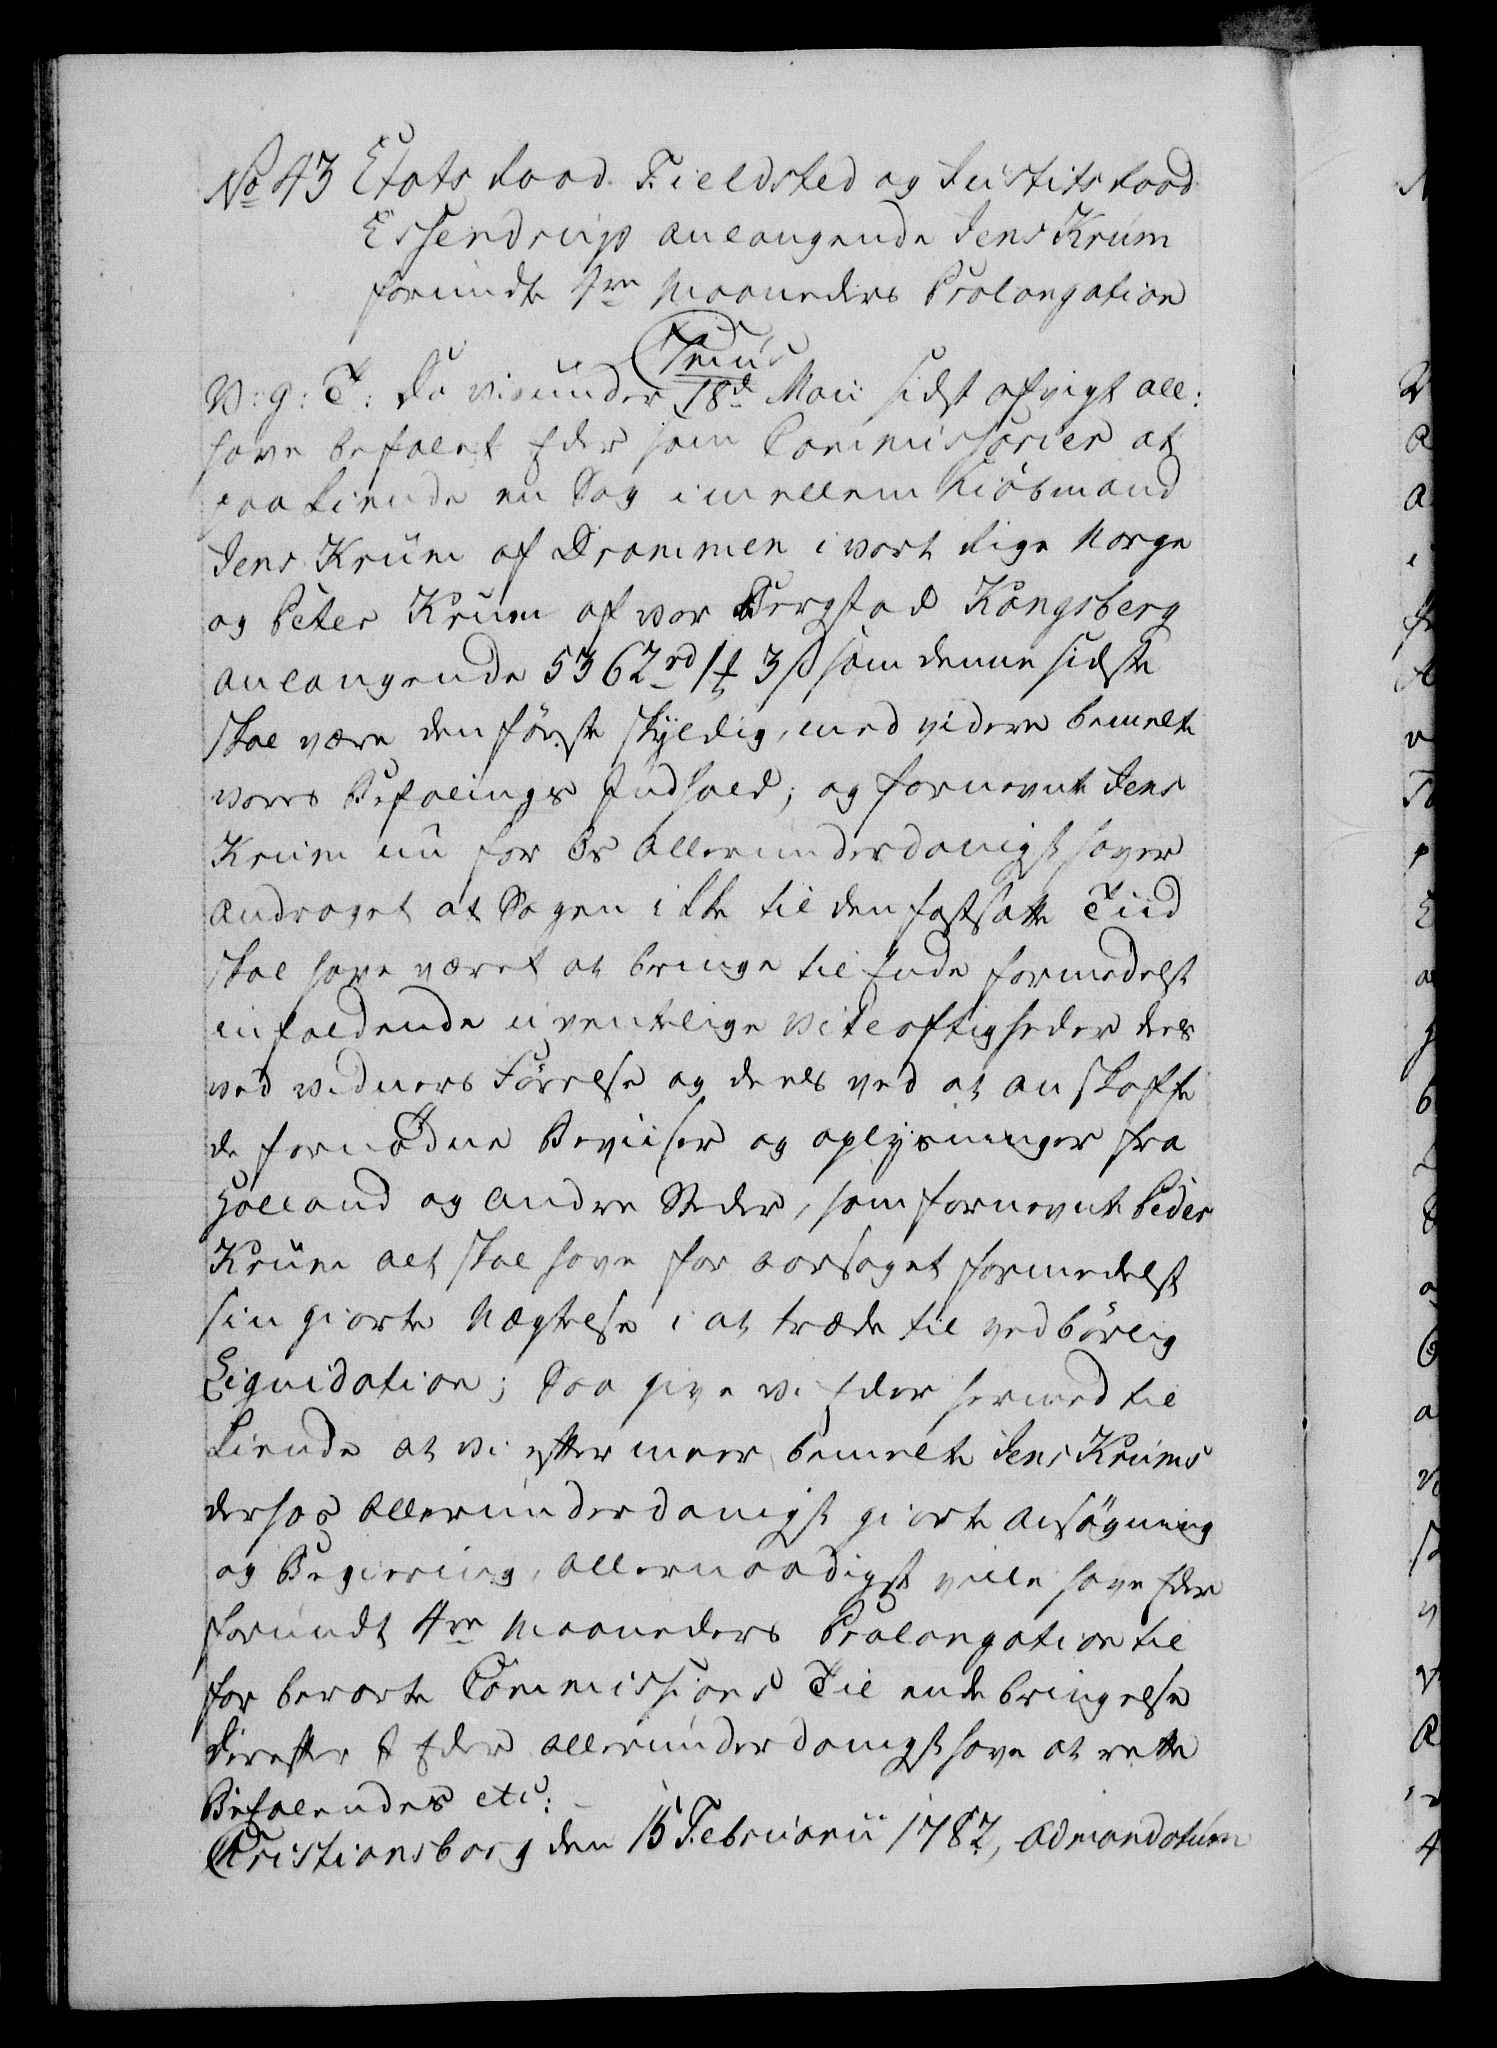 No 43 Etats Raad Fieldsted og Justits Raad
Essendrups anlangende Jens Krum
forundte 4re Maaneders Prolongation
V: g: T: Da vi under 18de Maii sidst afvigt all:
have befalet Eder som Commissarier at
paakiende en Sag imellem Kiøbmand
Jens Krum af Drammen i vort Rige Norge
og Peter Krum af vor Bergstad Kongsberg
anlangende 5362 rd 1 ʒ 3 ß som denne sidste
skal være den første skyldig, med videre bemelte
vores Befalings Indhold; og fornevnte Jens
Krum nu for Os Allerunderdanigst haver
andraget at Sagen ikke til den fastsatte Tiid
skal have været at bringe til Ende formedelst
indfaldende uventelige Vitløftigheder deels
ved Vidners Førelse og deels ved at anskaffe
de fornødne Beviiser og oplysninger fra
Holland og andre Steder, som fornevnte Peder
Krum alt skal have foraarsaget formedelst
sin giorte Nægtelse i at træde til vedbørlig
Liquidation; Saa give vi Eder hermed til
kiende at vi efter meer bemelte Jens Krums
derhos Allerunderdanigst giorte Ansøgning
og Begiering, Allernaadigst ville have Eder
forundt 4re Maaneders Prolongation til
forberørte Commissions Til endebringelse
Derefter I Eder allerunderdanigst have at rette
Befalendes etc:
Christiansborg den 15 Februarii 1782, ad mandatum